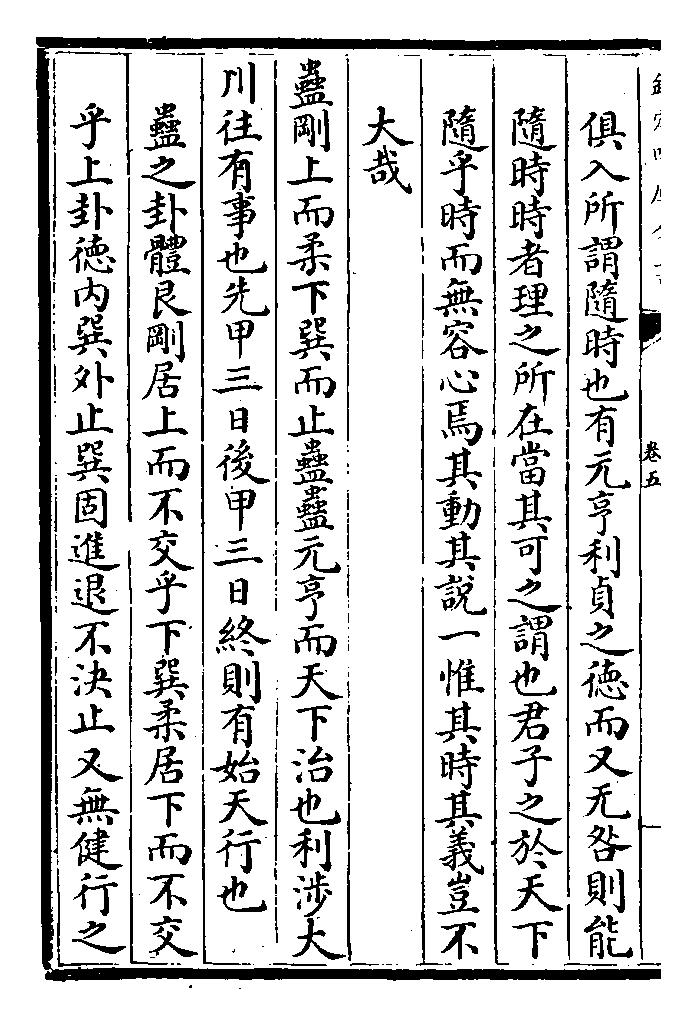 俱入所謂隨時也有元亨利貞之徳而又无咎則能
隨時時者理之所在當其可之謂也君子之於天下
隨乎時而無容心焉其動其說一惟其時其義豈不
大哉
蠱剛上而柔下巽而止蠱蠱元亨而天下治也利涉大
川往有事也先甲三日後甲三日終則有始天行也
蠱之卦體艮剛居上而不交乎下巽柔居下而不交
乎上卦徳内巽外止巽固進退不決止又無健行之
卷五